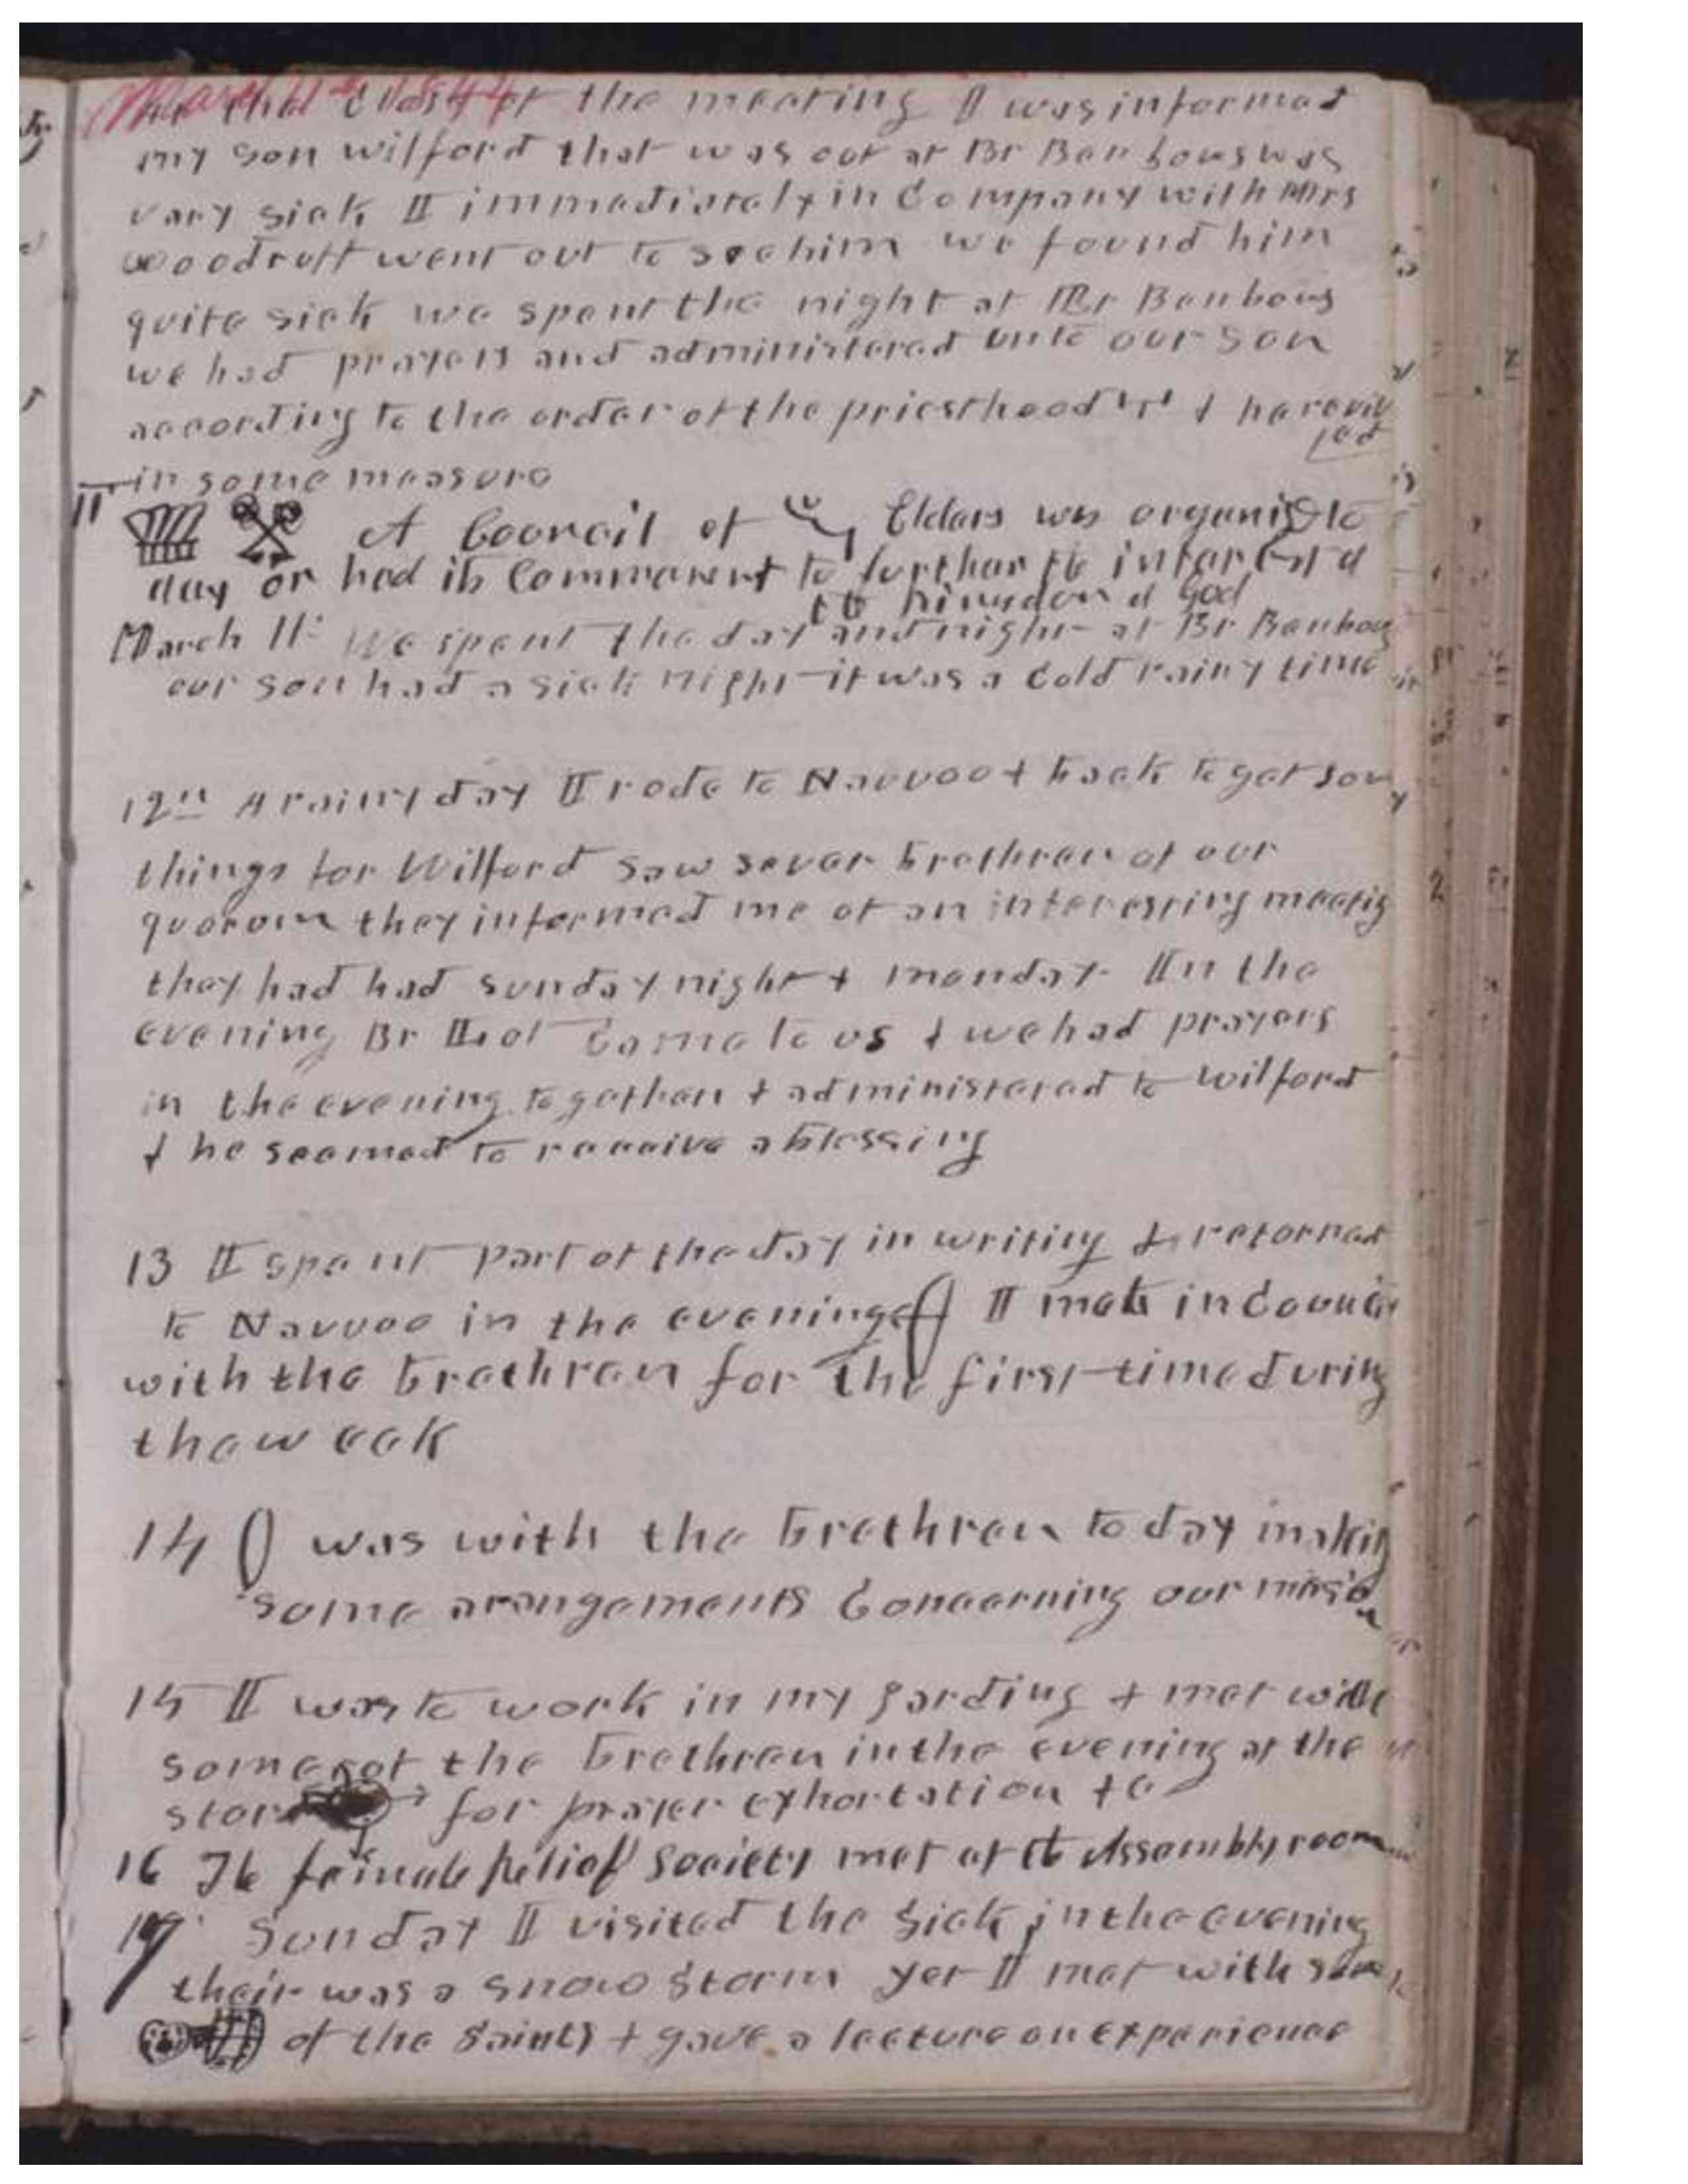 March 11th 1844
At the Close of the meeting I was informed
my son wilford that was out at Br Benbows was
vary sick I immediately in Company with Mrs
woodruff went out to see him we found him
quite sick we spent the night at Mr Benbows
we had prayers and administered unto our son
according to the order of the priesthood & he reviv
ied
in some measure
11 A Council of Elders was organised to
day or had its Commencement to further the interest of
the kingdom of God
March 11th We spent the day and night at Br Benbows
our son had a sick night it was a Cold rainy time
12th A rainy day I rode to Nauvoo & back to get some
things for Wilford saw sever brethren of our
quorum they informed me of an interesting meetig
they had had sunday night & monday In the
evening Br Came to us & we had prayers
in the evening together & administered to Wilford
& he seemed to receive a blessing
13 I spent part of the day in writing & returned
to Nauvoo in the evening I met in Council
with the brethren for the first time during
the week
14 I was with the brethren to day making
some arangements Concerning our mission
15 I was to work in my garding & met with
some of the brethren in the evening at the
store for prayer exhortation &c
16 The female Relief Society met at the Assembly room
17 Sunday I visited the sick in the evening
their was a snow storm yet I met with some
of the Saints & gave a lecture on experience